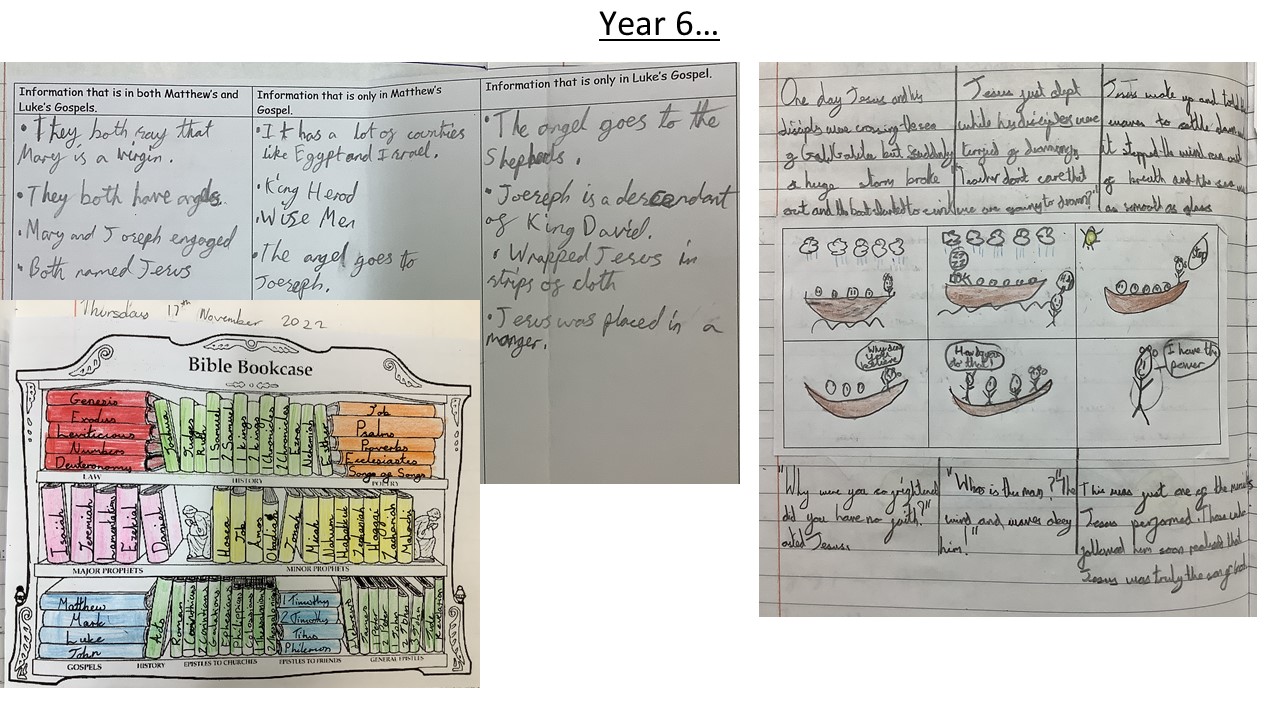 Year 6...
Information that is in both Matthew's and
Luke's Gospels.
• They both say that
Mary is a virgin.
• They both have angels.
• Mary and Joseph engaged
• Both named Jesus
Information that is only in Matthew's
Gospel.
• It has a lot of counties
like Egypt and Israel.
• King Herod
• Wise Men
• The angel goes to
Joeseph.
Information that is only in Luke's Gospel.
• The angel goes to the
Shepherds.
• Joeseph is a descendant
of King David.
• Wrapped Jesus in
strips of cloth
• Jesus was placed in a
manger.
Thursday 17th November 2022
Bible Bookcase
Genesis
Exodus
Leviticious
Numbers
Deuteronomy
LAW
Joshua
Judges
Ruth
1 Samuel
2 Samuel
1 Kings
2 Kings
1 Chronicles
2 Chronicles
Ezra
Nehemiah
Esther
HISTORY
Job
Psalms
Proverbs
Ecclesiastes
Songs of Songs
POETRY
Isaiah
Jeremiah
Lamentation
Ezekiel
Daniel
MAJOR PROPHETS
Hosea
Joel
Amos
Obadiah
Jonah
Micah
Nahum
Habakkuk
Zephaniah
Haggai
Zechariah
Malachi
MINOR PROPHETS
Matthew
Mark
Luke
John
GOSPELS
Acts
HISTORY
Romans
1 Corinthians
2 Corinthians
Galatians
Ephesians
Philippians
Colossians
EPISTLES TO CHURCHES
1 Timothy
2 Timothy
Titus
Philemon
EPISTLES TO FRIENDS
Hebrews
James
1 Peter
2 Peter
1 John
2 John
3 John
Jude
Revelation
GENERAL EPISTLES
One day Jesus and his
disciples were crossing the sea
of Galilee but suddenly
a huge storm broke
out and the boat started to sink
Jesus just slept
while his disciples were
terrified of drowning
"Teacher don't care that
we are going to drown?"
Jesus woke up and told the
waves to settle down
it stopped the wind ran out
of breath and the sea was
as smooth as glass
Stop
Why dont
you
believe
How do you
do that!
I have the
power
"Why were you so frightened
did you have no faith?"
asked Jesus.
"Who is this man?" "The
wind and waves obey
him!"
This was just one of the miracles
Jesus performed. Those who
followed him soon realised that
Jesus was truly the son of God